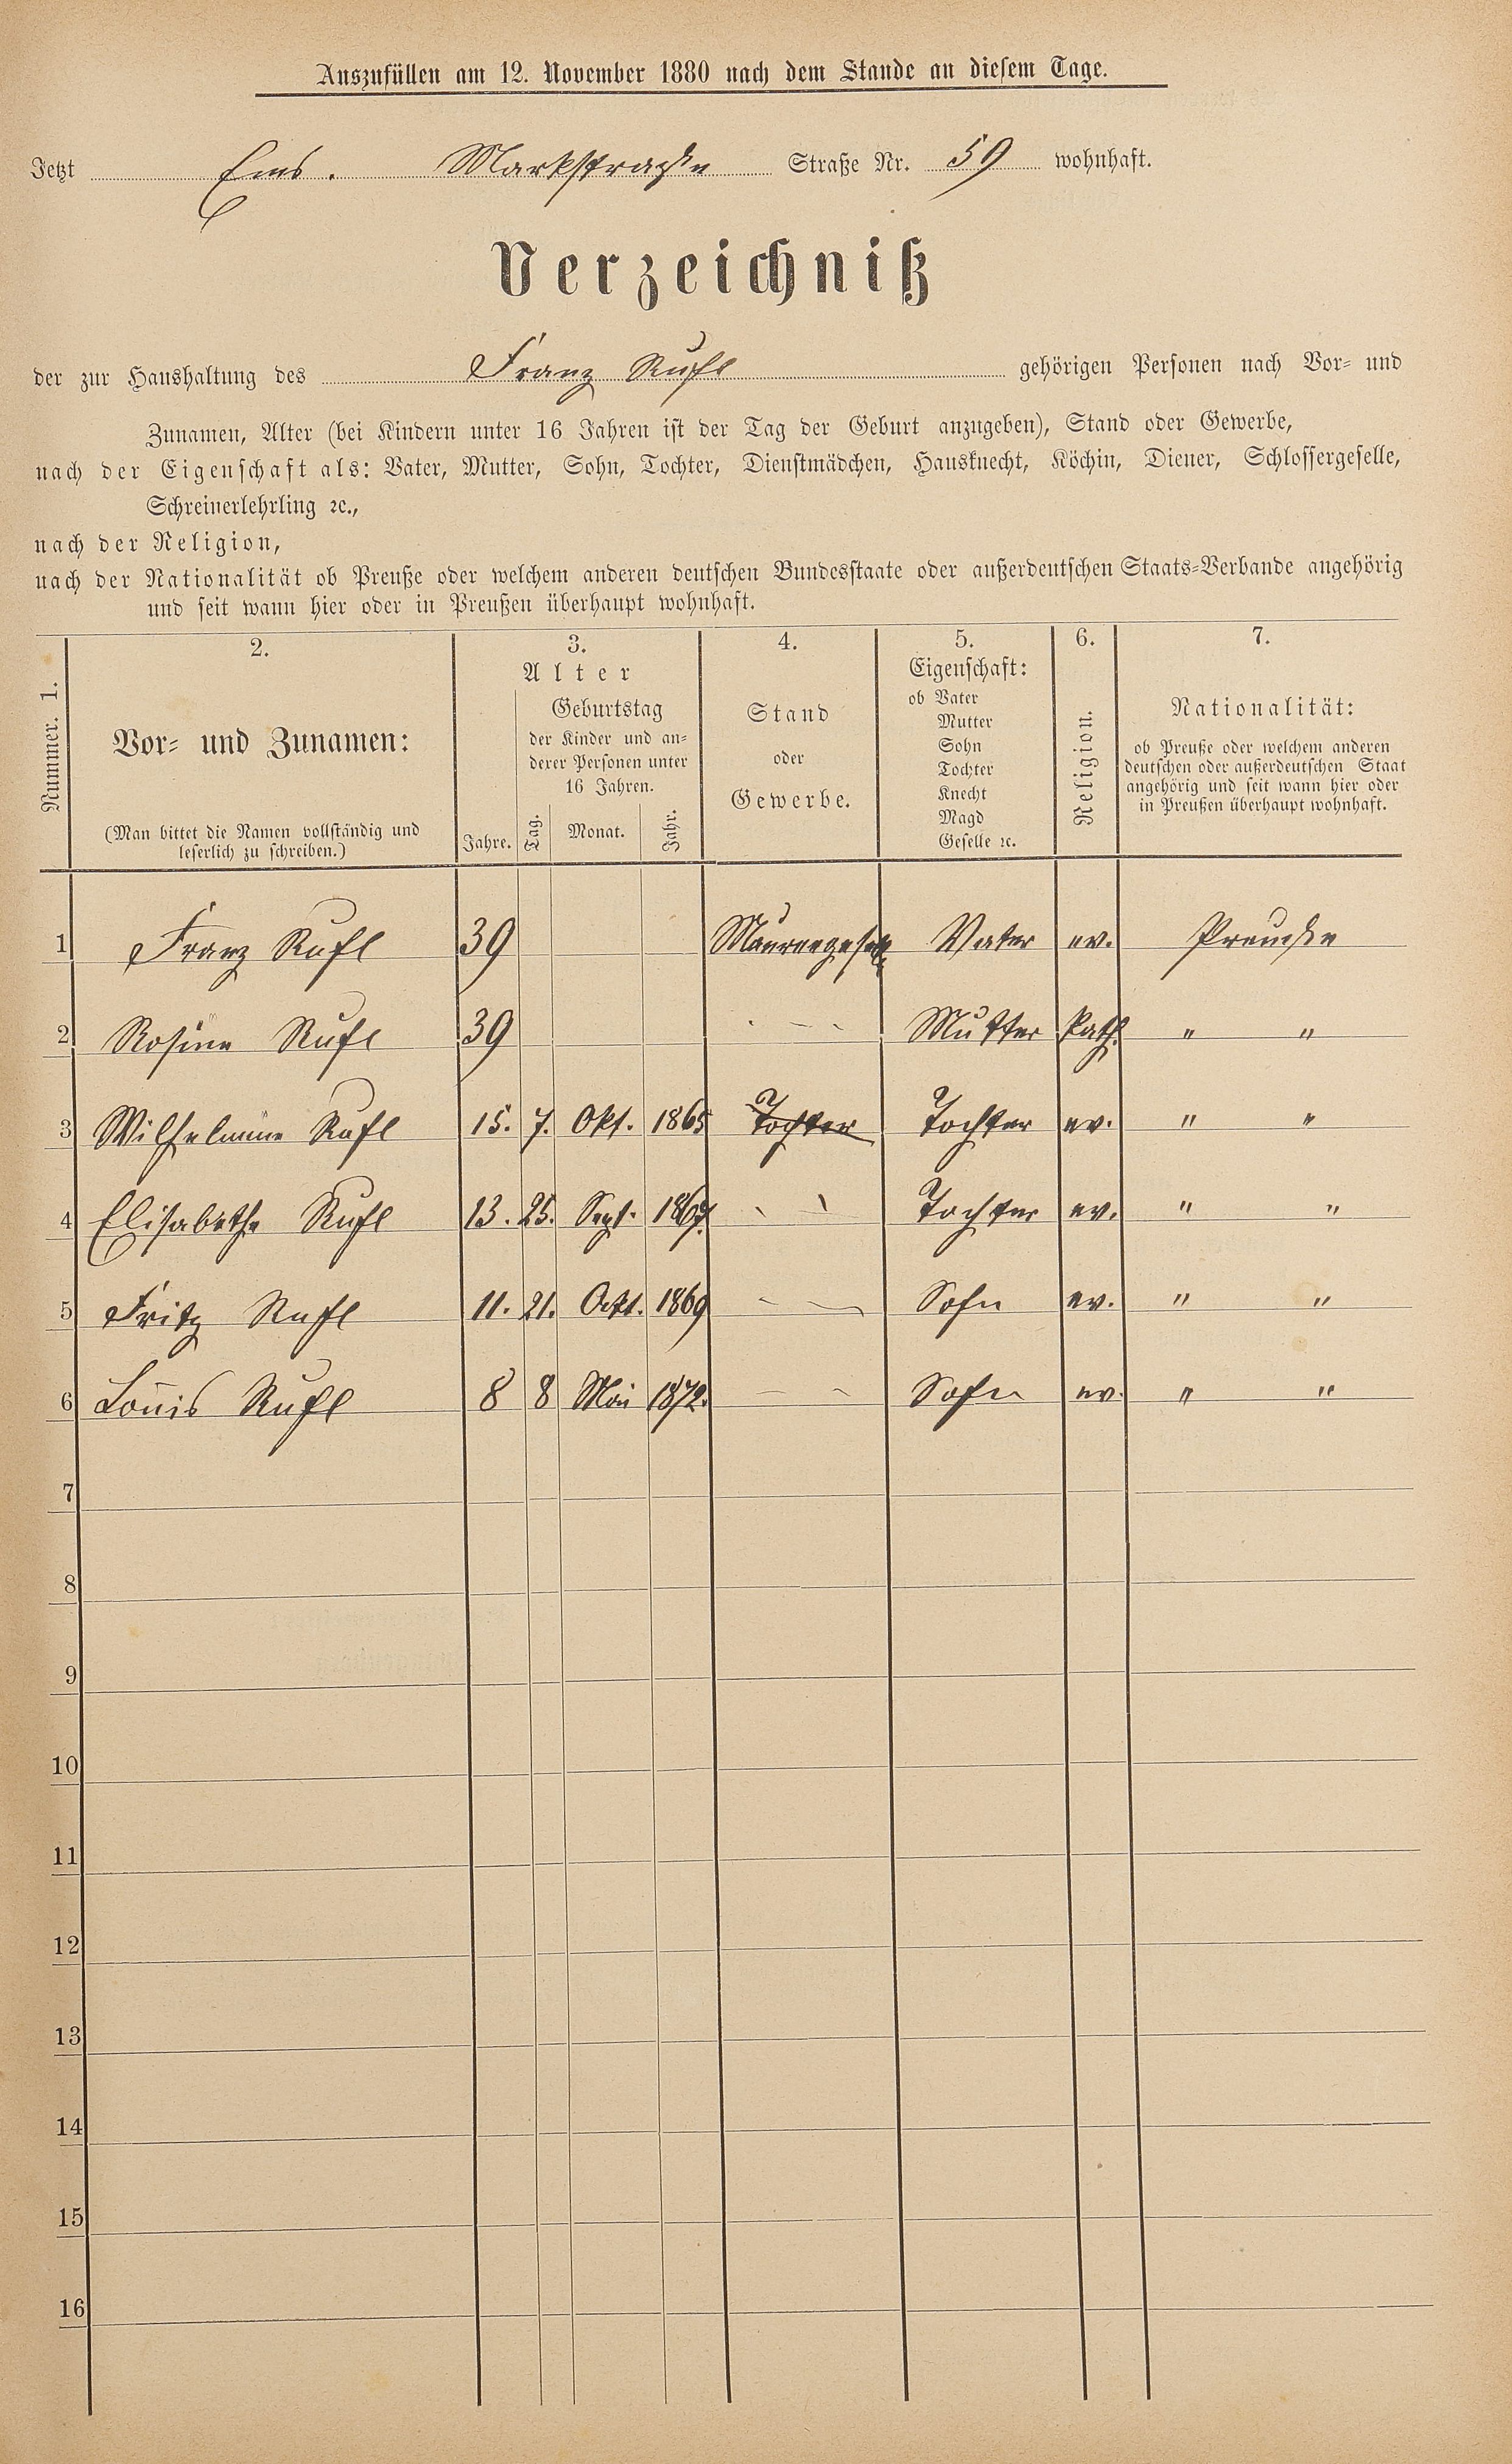 Auszufüllen am 12. November 1880 nach dem Stande an diesem Tage.
Jetzt Ems. Markstraße Straße Nr. 59 wohnhaft.
Verzeichniß
der zur Haushaltung des Franz Ruhl gehörigen Personen nach Vor- und
Zunamen, Alter (bei Kindern unter 16 Jahren ist der Tag der Geburt anzugeben), Stand oder Gewerbe,
nach der Eigenschaft als: Vater, Mutter, Sohn, Tochter, Dienstmädchen, Hausknecht, Köchin, Diener, Schlossergeselle,
Schreinerlehrling ꝛc.,
nach der Religion,
nach der Nationalität ob Preuße oder welchem anderen deutschen Bundesstaate oder außerdeutschen Staats-Verbande angehörig
und seit wann hier oder in Preußen überhaupt wohnhaft.
Nummer. 1.
2.
Vor- und Zunamen:
(Man bittet die Namen vollständig und
leserlich zu schreiben.)
3.
Alter
Jahre.
Geburtstag
der Kinder und an-
derer Personen unter
16 Jahren.
Tag. Monat. Jahr.
4.
Stand
oder
Gewerbe.
5.
Eigenschaft:
ob Vater
Mutter
Sohn
Tochter
Knecht
Magd
Geselle ꝛc.
6.
Religion.
7.
Nationalität:
ob Preuße oder welchem anderen
deutschen oder außerdeutschen Staat
angehörig und seit wann hier oder
in Preußen überhaupt wohnhaft.
1 Franz Ruhl 39 Maurergeselle Vater ev. Preuße
2 Rosine Ruhl 39 - - - Mutter Kath. " "
3 Wilhelmine Ruhl 15. 7. Okt. 1865 Tochter Tochter ev. " "
4 Elisabethe Ruhl 13. 25. Sept. 1867. - - Tochter ev. " "
5 Fritz Ruhl 11. 21. Oct. 1869 - - Sohn ev. " "
6 Louis Ruhl 8 8 Mai 1872. - - Sohn ev. " "
7
8
9
10
11
12
13
14
15
16